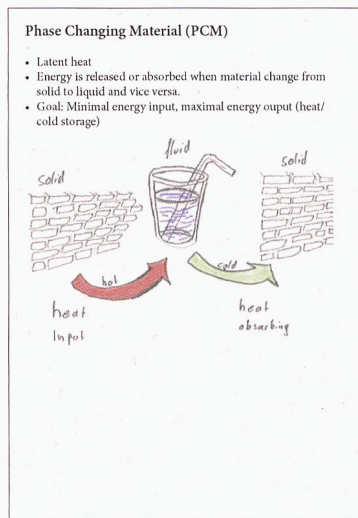 Phase Changing Material (PCM)
• Latent heat
• Energy is released or absorbed when material change from
solid to liquid and vice versa.
• Goal: Minimal energy input, maximal energy ouput (heat/
cold storage)
fluid
solid
solid
hot
cold
heat
Input
heat
absorbing